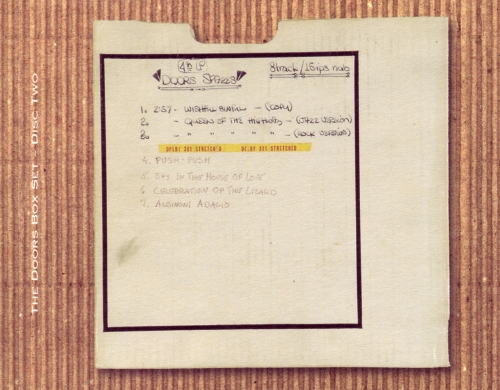 4th LP
DOORS SPARES
8track/15ips nab
1. 2:57 - WISHFUL SINFUL - (COPY)
2. - QUEEN OF THE HIGHWAY - (JAZZ VERSION)
3. - " " " " " - (ROCK VERSION)
DOLBY 301 STRETCHED DOLBY 301 STRETCHED
4. PUSH-PUSH
5. SPY IN THE HOUSE OF LOVE
6. CELEBRATION OF THE LIZARD
7. ALBINONI ADAGIO
THE DOORS BOX SET DISC TWO